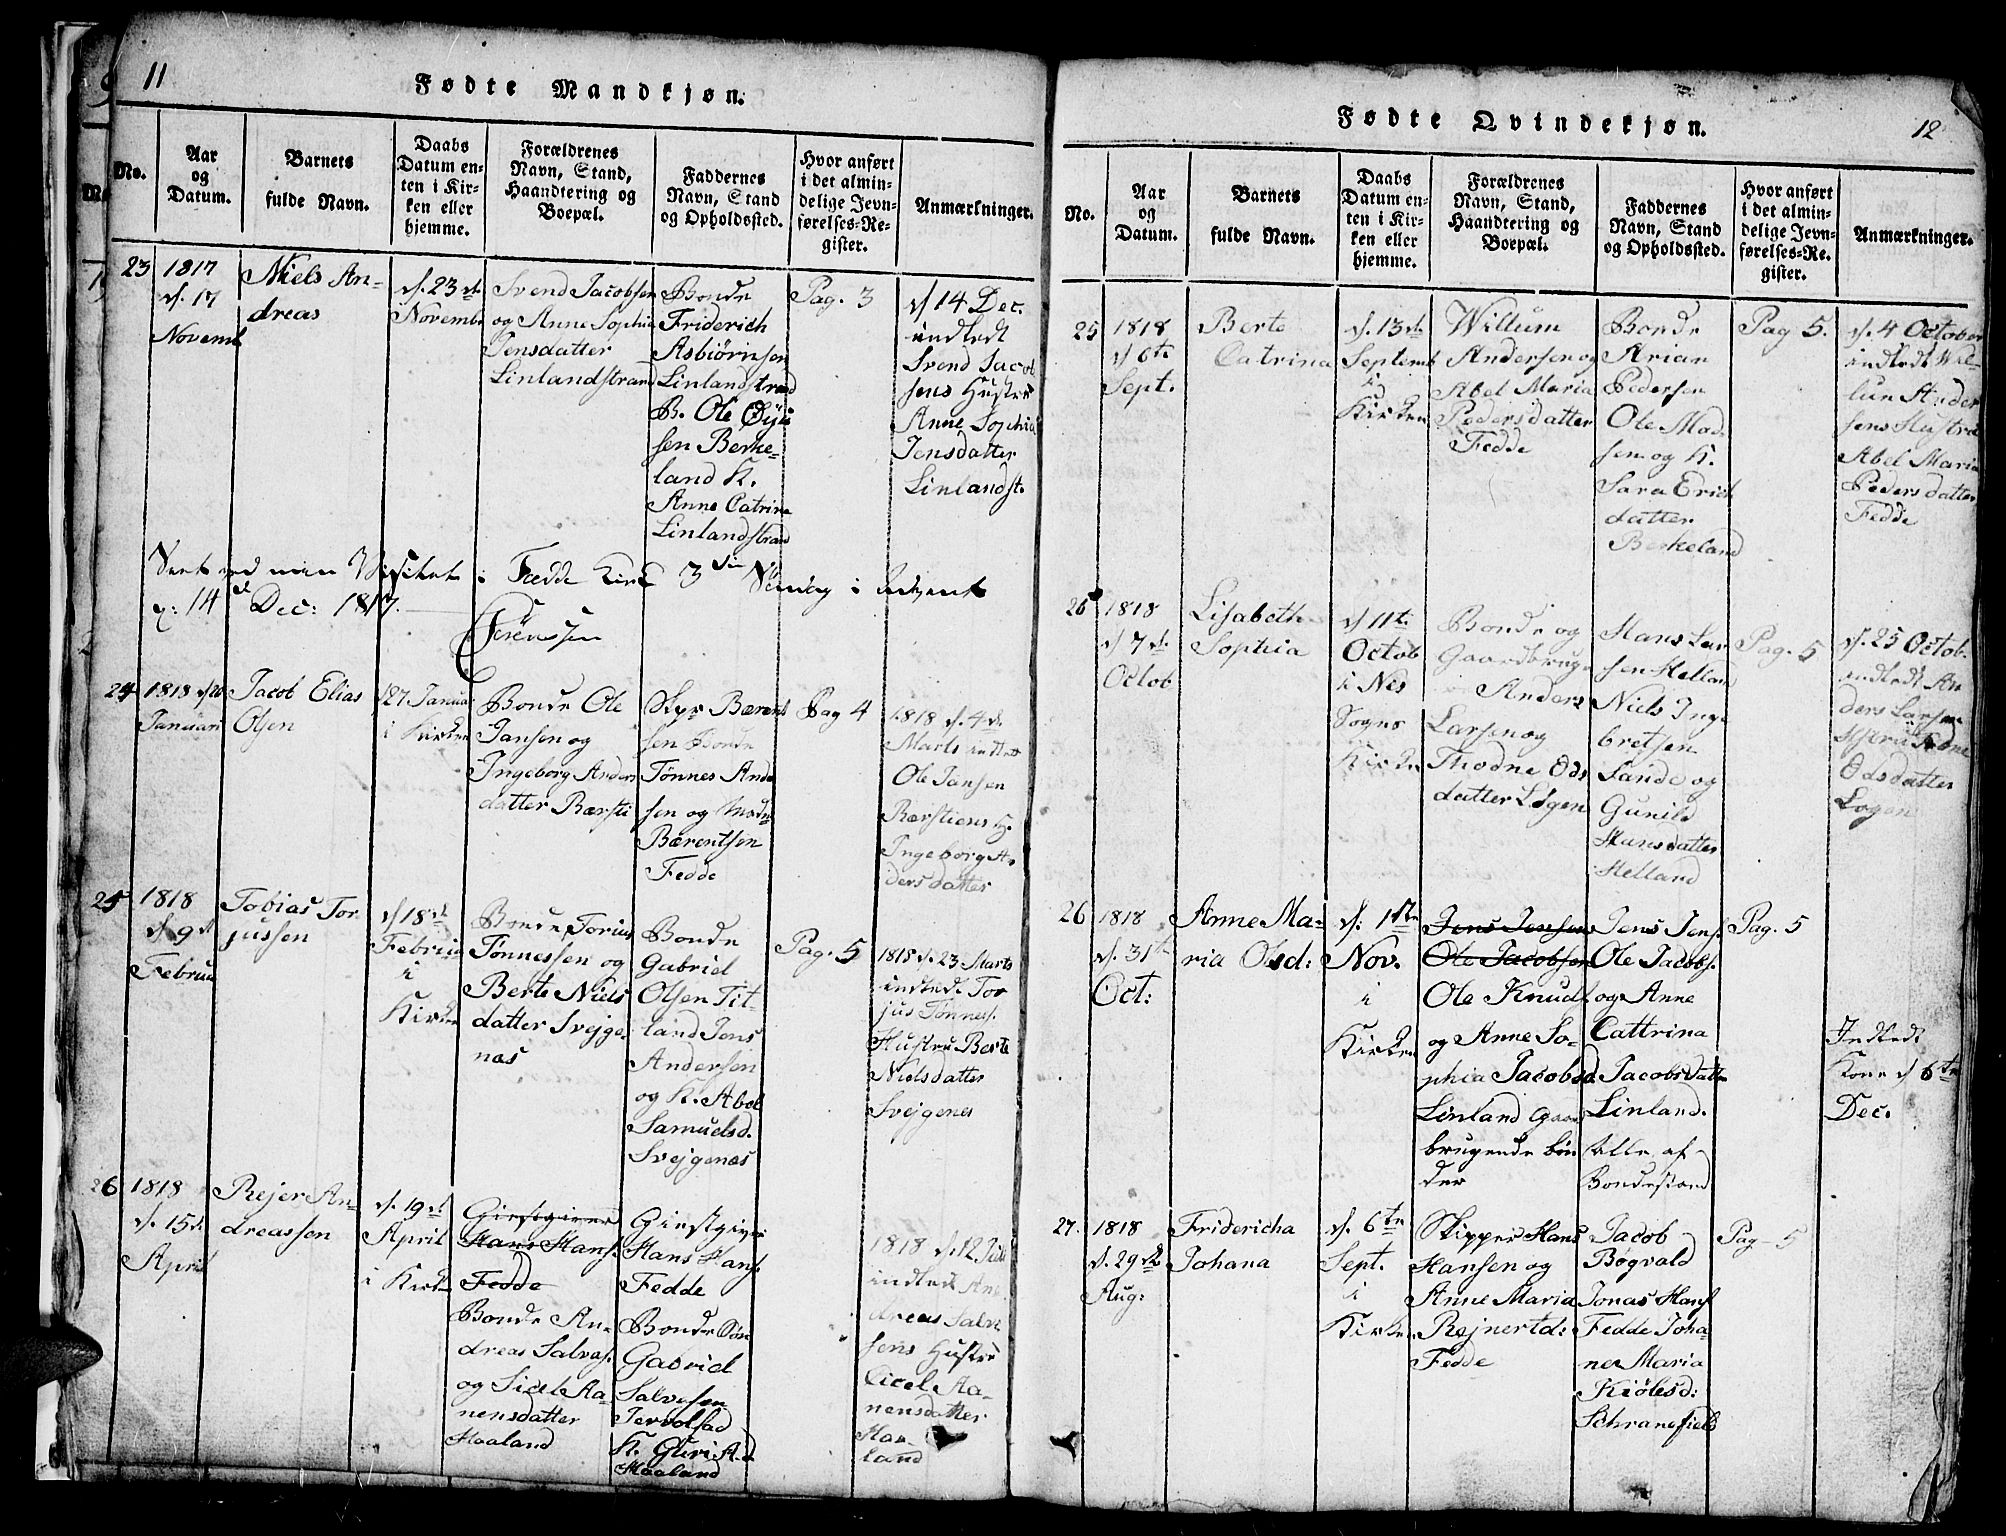 11
Fødte Mandkjøn.
No.
Aar
og
Datum.
Barnets
fulde Navn.
Daabs
Datum en-
ten i Kir-
ken eller
hjemme.
Forældrenes
Navn, Stand,
Haandtering og
Boepæl.
Faddernes
Navn, Stand
og Opholdssted.
Hvor anført
i det almin-
delige Jevn-
førelses-Re-
gister.
Anmærkninger.
23
1817
d. 17
Novemb
Niels An-
dreas
d. 23 de
Novembr
Svend Jacobsen
og Anne Sophia
Jensdatter
Linlandstrand
Bonde
Friderich
Asbiørnsen
Linlandstrand
B. Ole
sen Berke-
land K.
Anne Catrine
Linlandstrand
Pag. 3
d 14 Dec.
indledt
Svend Jacob
sens Hustrue
Anne Sophia
Jensdatter
Linlandst.
Fedde Kirke 3 die Søndag i Advent
14 de Dec: 1817.
24
1818 d 20
Januari
Jacob Elias
Olsen
d 27. Januar
i Kirken
Bonde Ole
Jansen og
Ingeborg Anders
datter Bærsti
Skpr Bærent
sen Bonde
Tønnes Ande
sen og
Bærentsen
Fedde
Pag 4
1818 d. 4 de
Marts indledt
Ole Jansen
Bærstiens H.
Ingeborg An
dersdatter
25
1818
d 9 de
Februar
Tobias Tor
jussen
d 18 de
Februar
i
Kirken
Bonde Torius
Tønnessen og
Berte Niels
datter Svejge
næs
Bonde
Gabriel
Olsen Tit
land Jens
Andersen
og K. Abel
Samuelsd.
Svejgenæs
Pag. 5
1818 d. 23 Marts
indledt Tor
jus Tønnes.
Hustru Berte
Nielsdatter
Svejgenes
26
1818
d. 15 de
April
Rejer An-
dreassen
d. 19 de
April
i Kirken
Giestgiver
Hans Hans.
Fedde
Bonde An-
dreas Salves.
og Sicel Aa-
nensdatter
Haaland
Giestgiver
Hans Hans.
Fedde
Bonde Søn
Gabriel
Salvesen
K. Guri A.d
Haaland
1818 d. 12 Juli
indledt An
dreas Salve
sens Hustrue
Cicel Aa-
nensdatter
Haa-
land
12
Fødte Qvindekjøn.
No.
Aar
og
Datum.
Barnets
fulde Navn.
Daabs
Datum en-
ten i Kir-
ken eller
hjemme.
Forældrenes
Navn, Stand,
Haandtering og
Boepæl.
Faddernes
Navn, Stand
og Opholdssted.
Hvor anført
i det almin-
delige Jevn-
førelses-Re-
gister.
Anmærkninger.
25
1818
d 6te
Sept.
Berte
Catrina
d. 13 de
Septemb
i
Kirken
Willum
Andersen og
Abel Maria
Pedersdatter
Fedde
Bonde
Arian
Pedersen
Ole Mad-
sen og K.
Sara Erich
datter
Berkeland
Pag 5.
d. 4 October
indledt Wil-
lum Ander
sens Hustrue
Abel Maria
Pedersdatter
Fedde
26
1818
d 7 de
Octob
Lisabeth
Sophia
d 11te
Octob
i Nes
Sogns
Kirke
Bonde og
Gaardbruge
Anders
Larsen og
Thodne Ods
datter Løgen
Hans Lar
sen Helland
Niels Inge
bretsen
Lande og
Gunild
Hansdatter
Helland
Pag. 5
d. 25 Octob.
indledt An
ders Larsen
Odsdatter
Løgen
26
1818
d. 31te
Oct:
Anne Ma-
ria Olsd:
d. 1ste
Nov.
i
Kirken
Jens Jensen
Ole Jacobsen
Ole Knuds.
og Anne So-
phia Jacobsd
Linland Gaar
brugende bøn
der
Jens Jens.
Ole Jacobs.
og Anne
Cattrina
Jacobsdatter
Linland.
Alle af
Bondestand
Pag. 5
Indledt
Kone d 6te
Dec.
27.
1818
d. 29 de
Aug:
Fridericha
Johana
d. 6te
Sept.
i
Kirken
Skipper Hans
Hansen og
Anne Maria
Rejnertd:
Fedde
Jacob
Bøgvald
Jonas Hans
Fedde Joha-
ne Maria
Kiølesd:
Schranefield
Pag 5